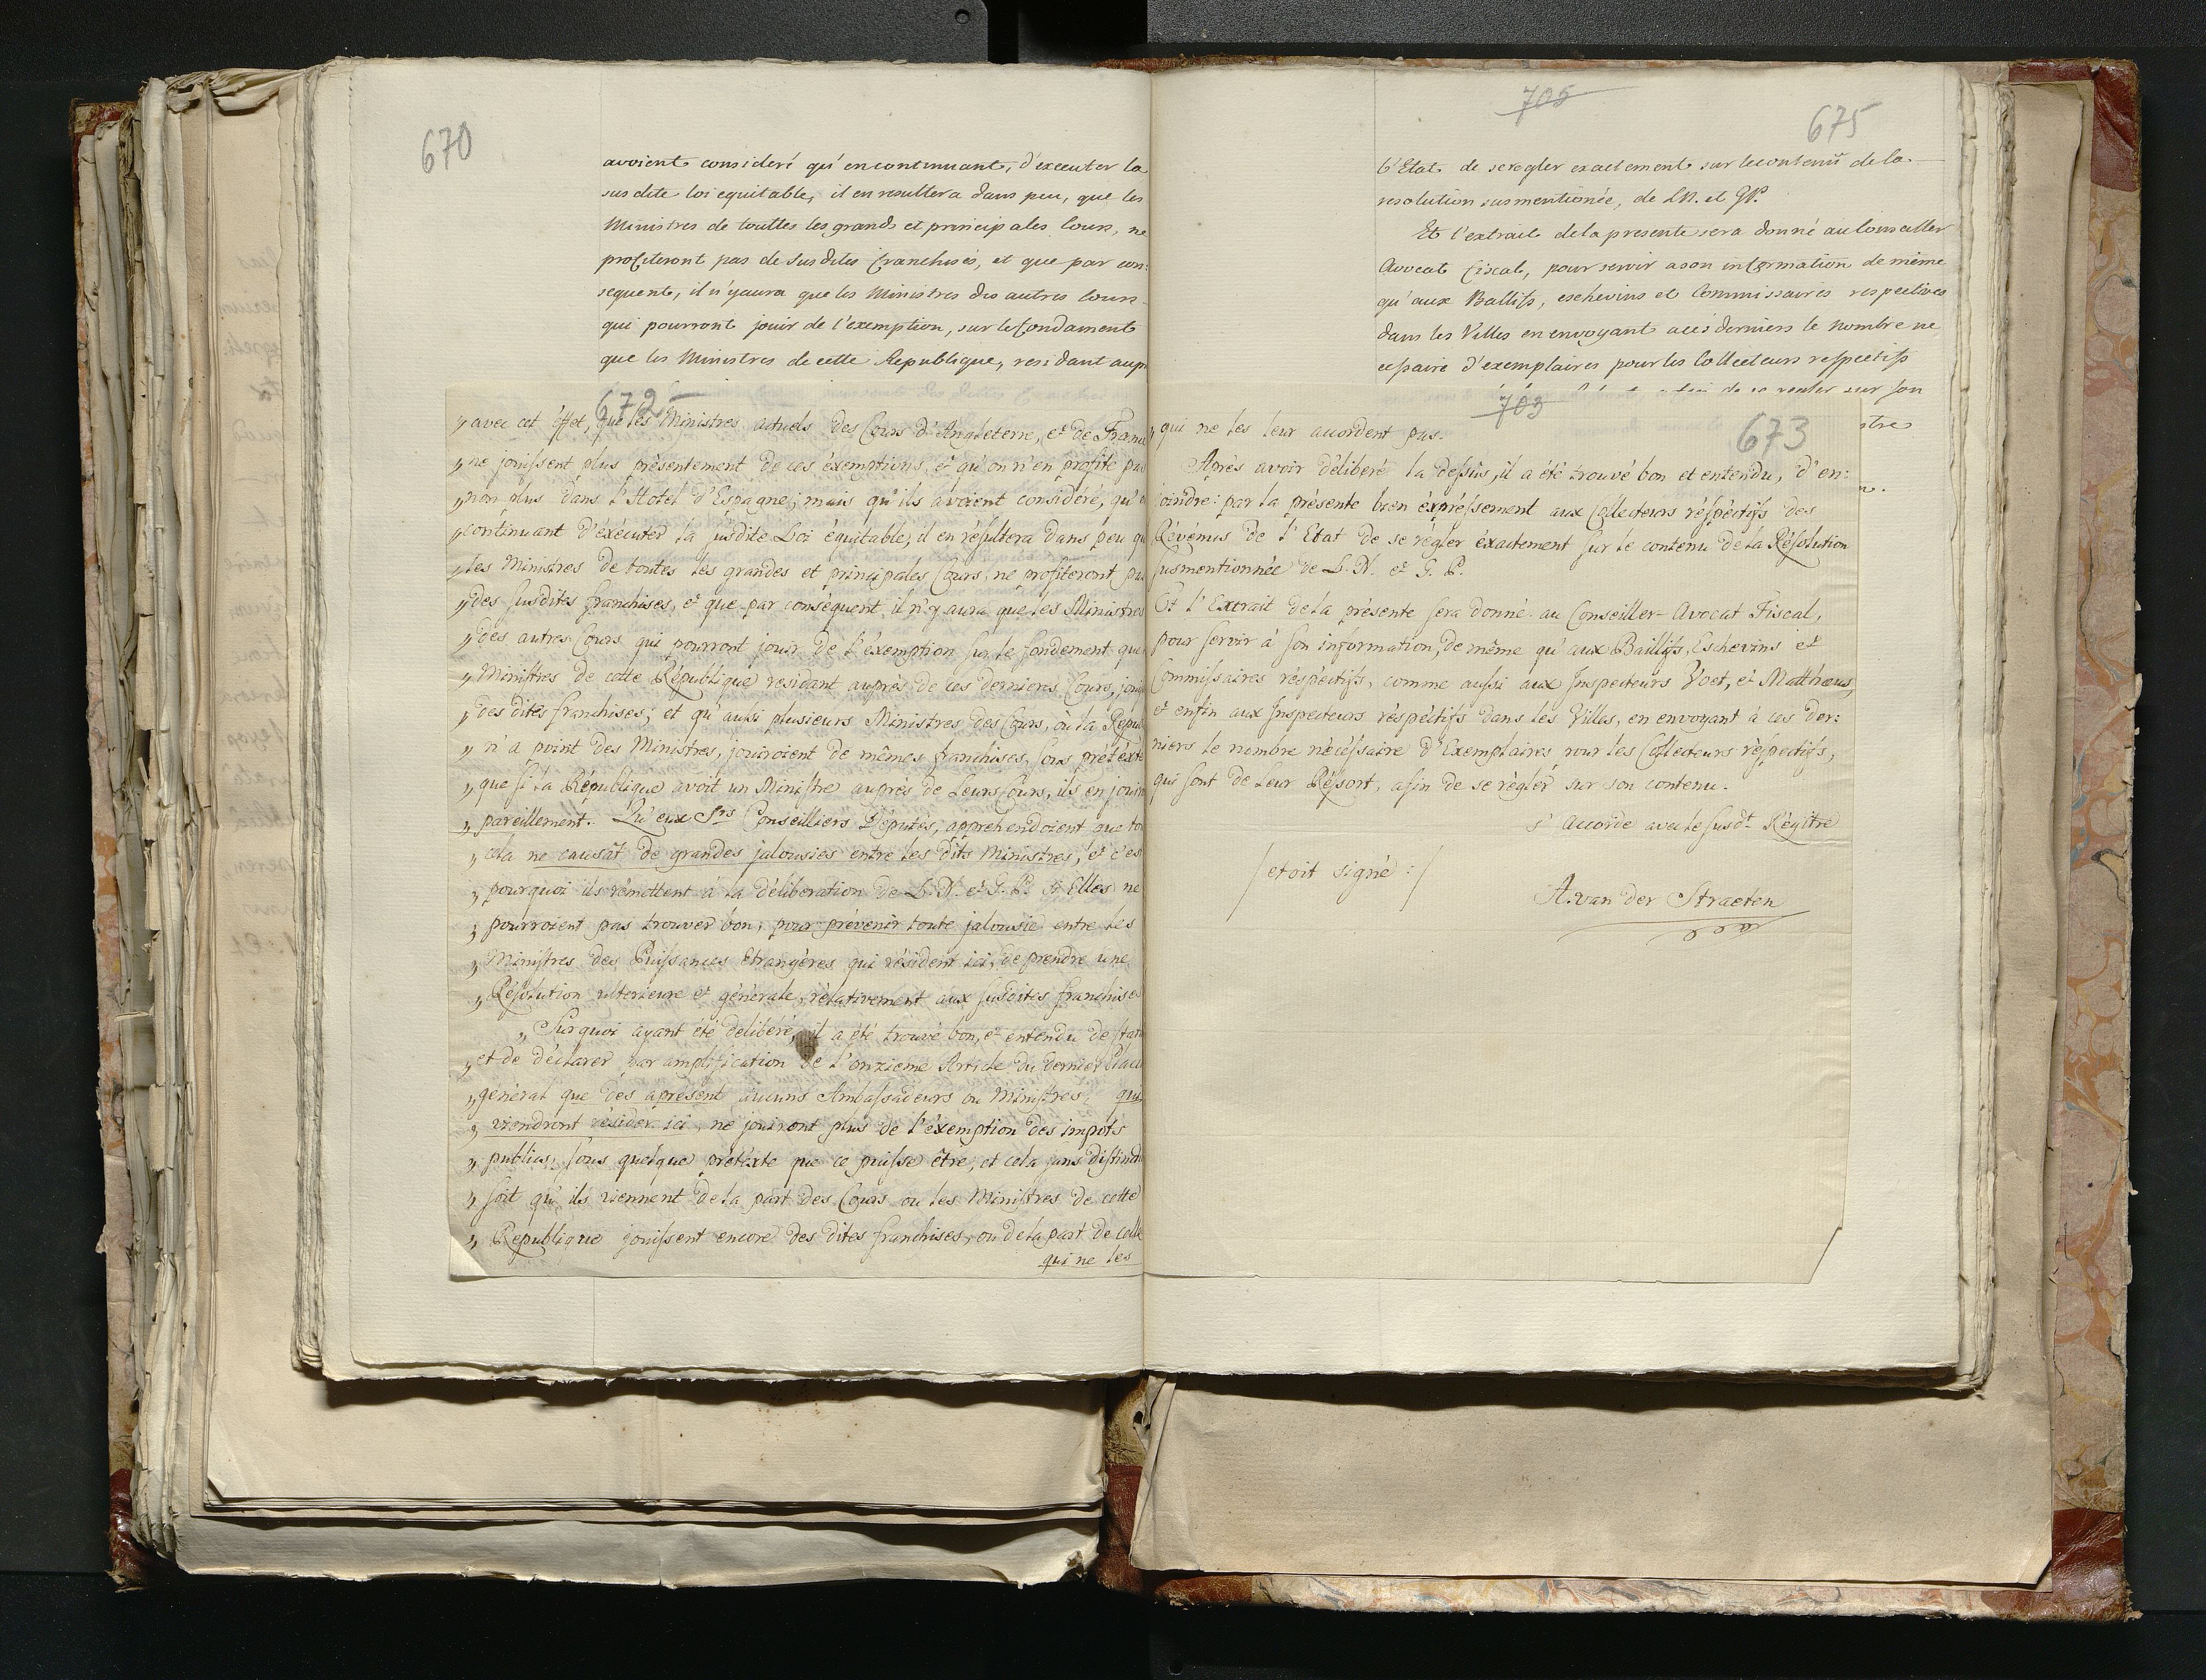 670
avoient consideré qu'encontinuant, d'executer la
sus dite loi equitable, il en resultera dans peu, que les
Ministres de toutles les grands et principales Cours, ne
profiteront pas de susdites franchises, et que par con:
sequent, il n'yaura que les Ministres des autres Cours
qui pourront jouir de l'exemption, sur le fondament
que les Ministres de cette Republique, residant aup
672
„ avec cet éffet, que les Ministres actuels des Cours d'Angleterre, et de Franc
„ ne jouissent plus présentement de ces éxemptions, et qu'on n'en profite pas
„ non plus dans l'Hotel d'Espagne; mais qu'ils avoient considéré, qu'e
„ continuant d'éxécuter la susdite Loi équitable, il en résultera dans peu qu
„ les Ministres de toutes les grandes et principales Cours, ne profiteront pas
„ des susdites franchises, et que par conséquent, il n'y aura que les Ministres
„ des autres Cours qui pourront jouir de l'éxemption sur le fondement que
„ Ministres de cette République residant auprès de ces dernieres Cours, joui
„ des dites franchises; et qu'aussi plusieurs Ministres des Cours, où la Répu
„ n'a point des Ministres, jouiroient de mêmes franchises, sous prétéxte
„ que si la République avoit un Ministre auprès de Leurs Cours, ils en jouir
„ pareillement. Qu'eux Srs Conseilliers Députés, apprehendoient que to
„ cela ne causât de grandes jalousies entre les dits Ministres, et c'es
„ pourquoi ils rémettent à la déliberation de L. N. et G. P. si Elles ne
„ pourroient pas trouver bon, pour prévenir toute jalousie entre les
„ Ministres des Puissances Etrangères qui résident ici, de prendre une
„ Résolution ulterieure et générale, rélativement aux susdites franchises
„ Sur quoi ayant été delibéré, il a été trouvé bon, et entendu de stat
„ et de déclarer par amplification de l'onzieme Article du dernier Placa
„ général que des aprésent aucuns Ambassadeurs ou Ministres, qui
„ viendront résider ici, ne jouiront plus de l'éxemption des impôts
„ publics, sous quelque prétéxte que ce puisse être, et cela sans distincti
„ soit qu'ils viennent de la part des Cours ou les Ministres de cette
„ Republique jouissent encore des dites franchises, ou de la part de celle
qui ne les
705
675
l'Etat de seregler exactement sur lecontenü de la
resolution susmentionée, de LN. et GP.
Et l'extrait dela presente sera donné auConseiller
Avocat fiscal, pour servir ason information de même
qu'aux Ballifs, eschevins et Commissaires respectives
dans les Villes en envoyant aces derniers le nombre ne
cessaire d'exemplaires pour les Collecteurs respectifs
de se regler sur son
stre
703
673
„ qui ne les leur accordent pas.
Après avoir délibéré la dessus, il a été trouvé bon et entendu, d'en:
joindre par la présente bien éxpréssement aux Collecteurs réspéctifs des
Révénus de l'Etat de se régler éxactement sur le contenu de la Résolution
susmentionnée de L. N. et G. P.
Et l'Extrait de la présente sera donné au Conseiller-Avocat Fiscal,
pour servir à son information, de même qu'aux Baillifs, Eschevins et
Commissaires réspéctifs, comme aussi aux Inspecteurs Voet, et Matthæus,
et enfin aux Inspecteurs réspéctifs dans les Villes, en envoyant à ces der:
niers le nombre nécéssaire d'Exemplaires pour les Collecteurs réspectifs,
qui sont de leur Réssort, afin de se régler sur son contenu.
s'accorde avec le susdt Régitre
/ etoit signé: /
A. van der Straeten